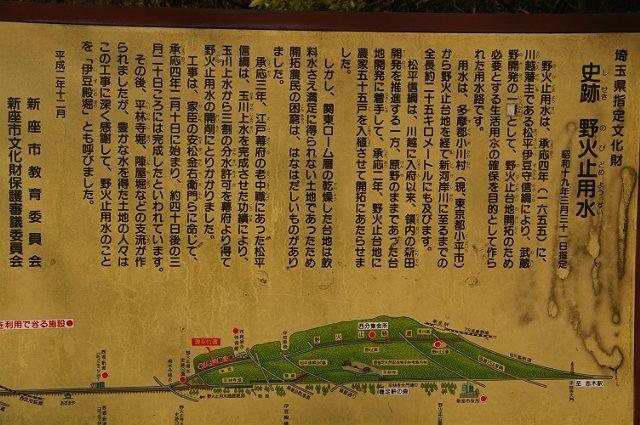 埼玉県指定文化財
史跡 野火止用水
しせき のびどめようすい
昭和十九年三月三十一日指定
野火止用水は、承応四年（一六五五）に、
川越藩主である松平伊豆守信綱により、武蔵
野開発の一環として、野火止台地開拓のため
必要とする生活用水の確保を目的として作ら
れた用水路です。
用水は、多摩郡小川村（現、東京都小平市）
から野火止台地を経て新河岸川に至るまでの
全長約二十五キロメートルにも及びます。
松平信綱は、川越に入府以来、領内の新田
開発を推進する一方、原野のままであった台
地開発に着手して、承応二年、野火止台地に
農家五十五戸を入植させて開拓にあたらせま
した。
しかし、関東ローム層の乾燥した台地は飲
料水さえ満足に得られない土地であったため
開拓農民の困窮は、はなはだしいものがあり
ました。
承応三年、江戸幕府の老中職にあった松平
信綱は、玉川上水を完成させた功績により、
玉川上水から三割の分水許可を幕府より得て
野火止用水の開削にとりかかりました。
工事は、家臣の安松金右衛門らに命じて、
承応四年二月十日に始まり、約四十日後の三
月二十日ごろには完成したといわれています。
その後、平林寺堀、陣屋堀などの支流が作
られましたが、豊かな水を得た土地の人々は
この工事に深く感謝して、野火止用水のこと
を「伊豆殿堀」とも呼びました。
平成二年十二月
新座市教育委員会
新座市文化財保護審議委員会
を利用できる施設
現在位置
西分集会所
野火止用水
睡足軒の森
新座市役所
至 志木駅